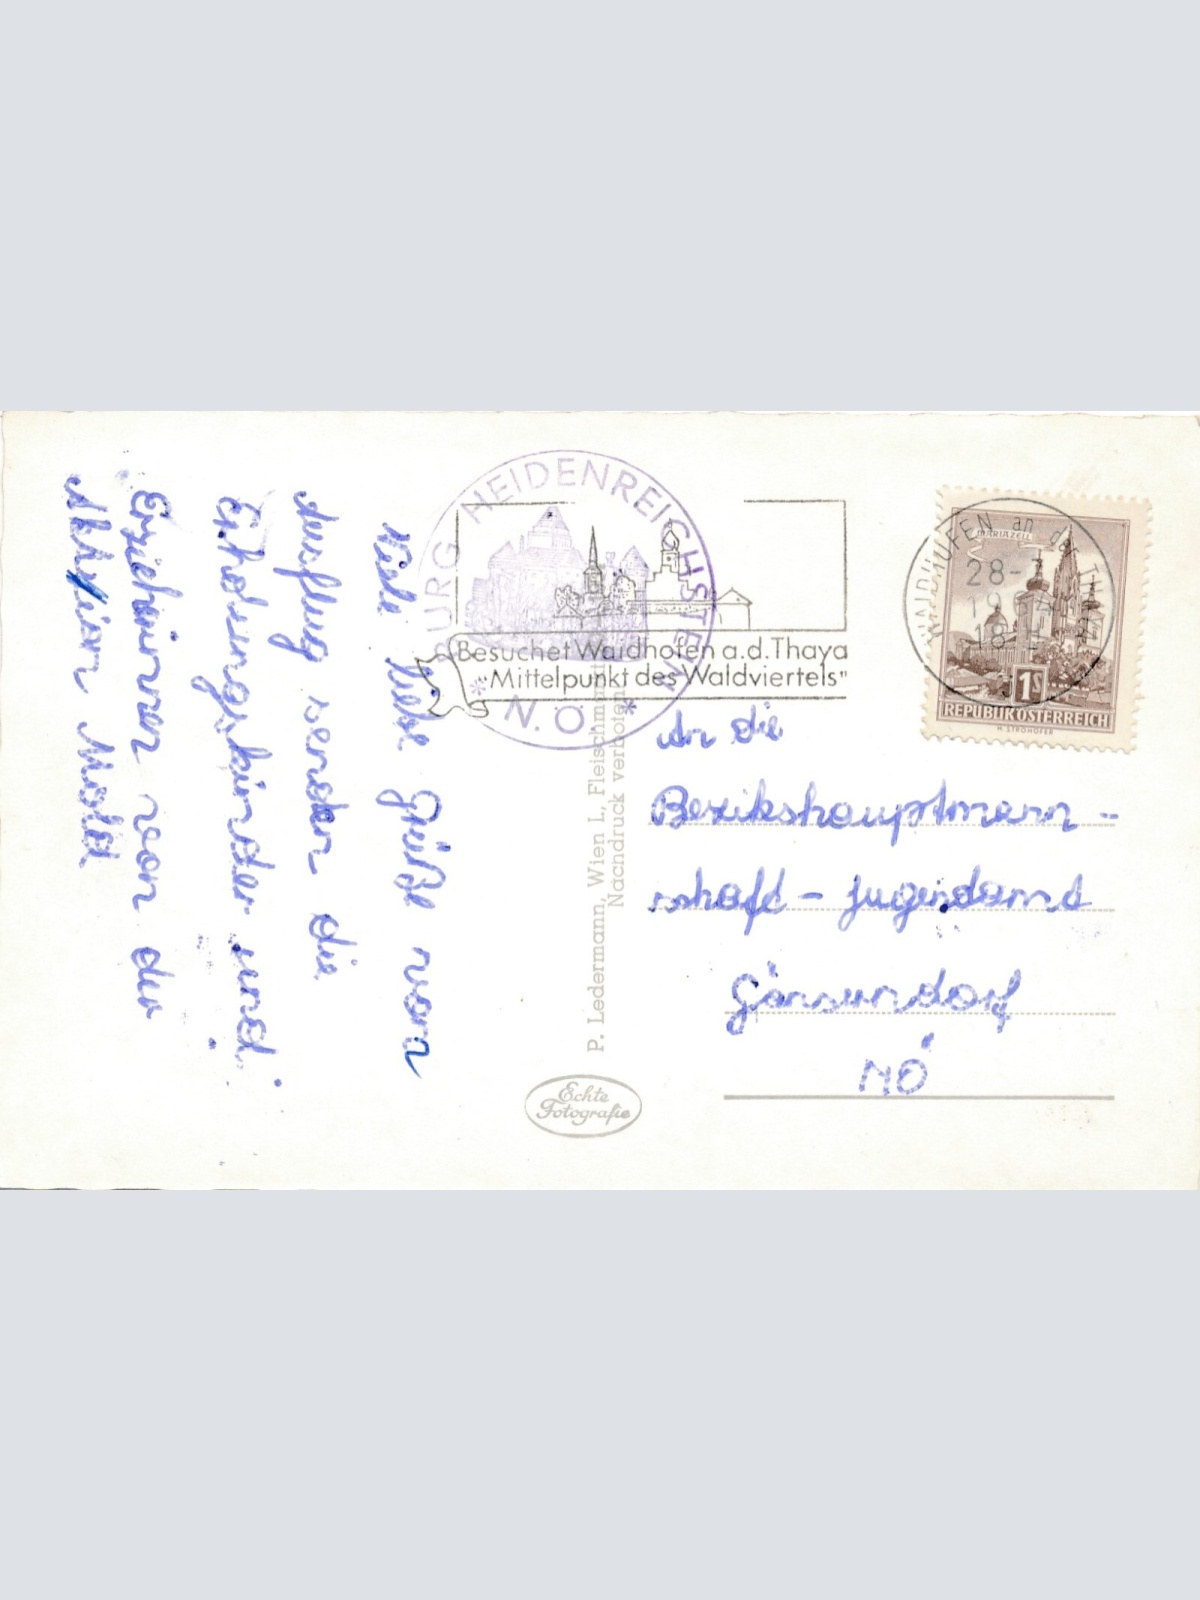 Viele liebe Grüße vom
Ausflug senden die
Erholungskinder und
Erzieherinnen von der
Aktion Mold
BURG HEIDENREICHSTEIN
* N.Ö. *
Besuchet Waidhofen a.d.Thaya
"Mittelpunkt des Waldviertels"
P. Ledermann, Wien I., Fleischmarkt
Nachdruck verboten
Echte
Fotografie
WAIDHOFEN an der THAYA
28-
18
MARIAZELL
1S
REPUBLIK ÖSTERREICH
H. STROHOFER
An die
Bezikshauptmann -
schaft - Jugendamd
Gänserndorf
NÖ